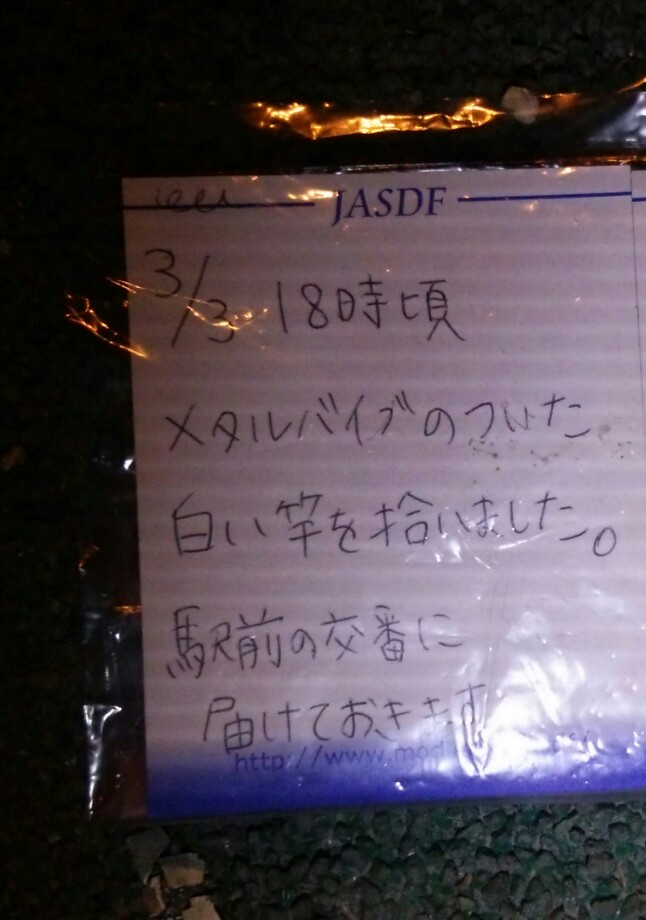 JASDF
3/3 18時頃
メタルバイブのついた
白い竿を拾いました。
駅前の交番に
届けておきます
http://www.mod